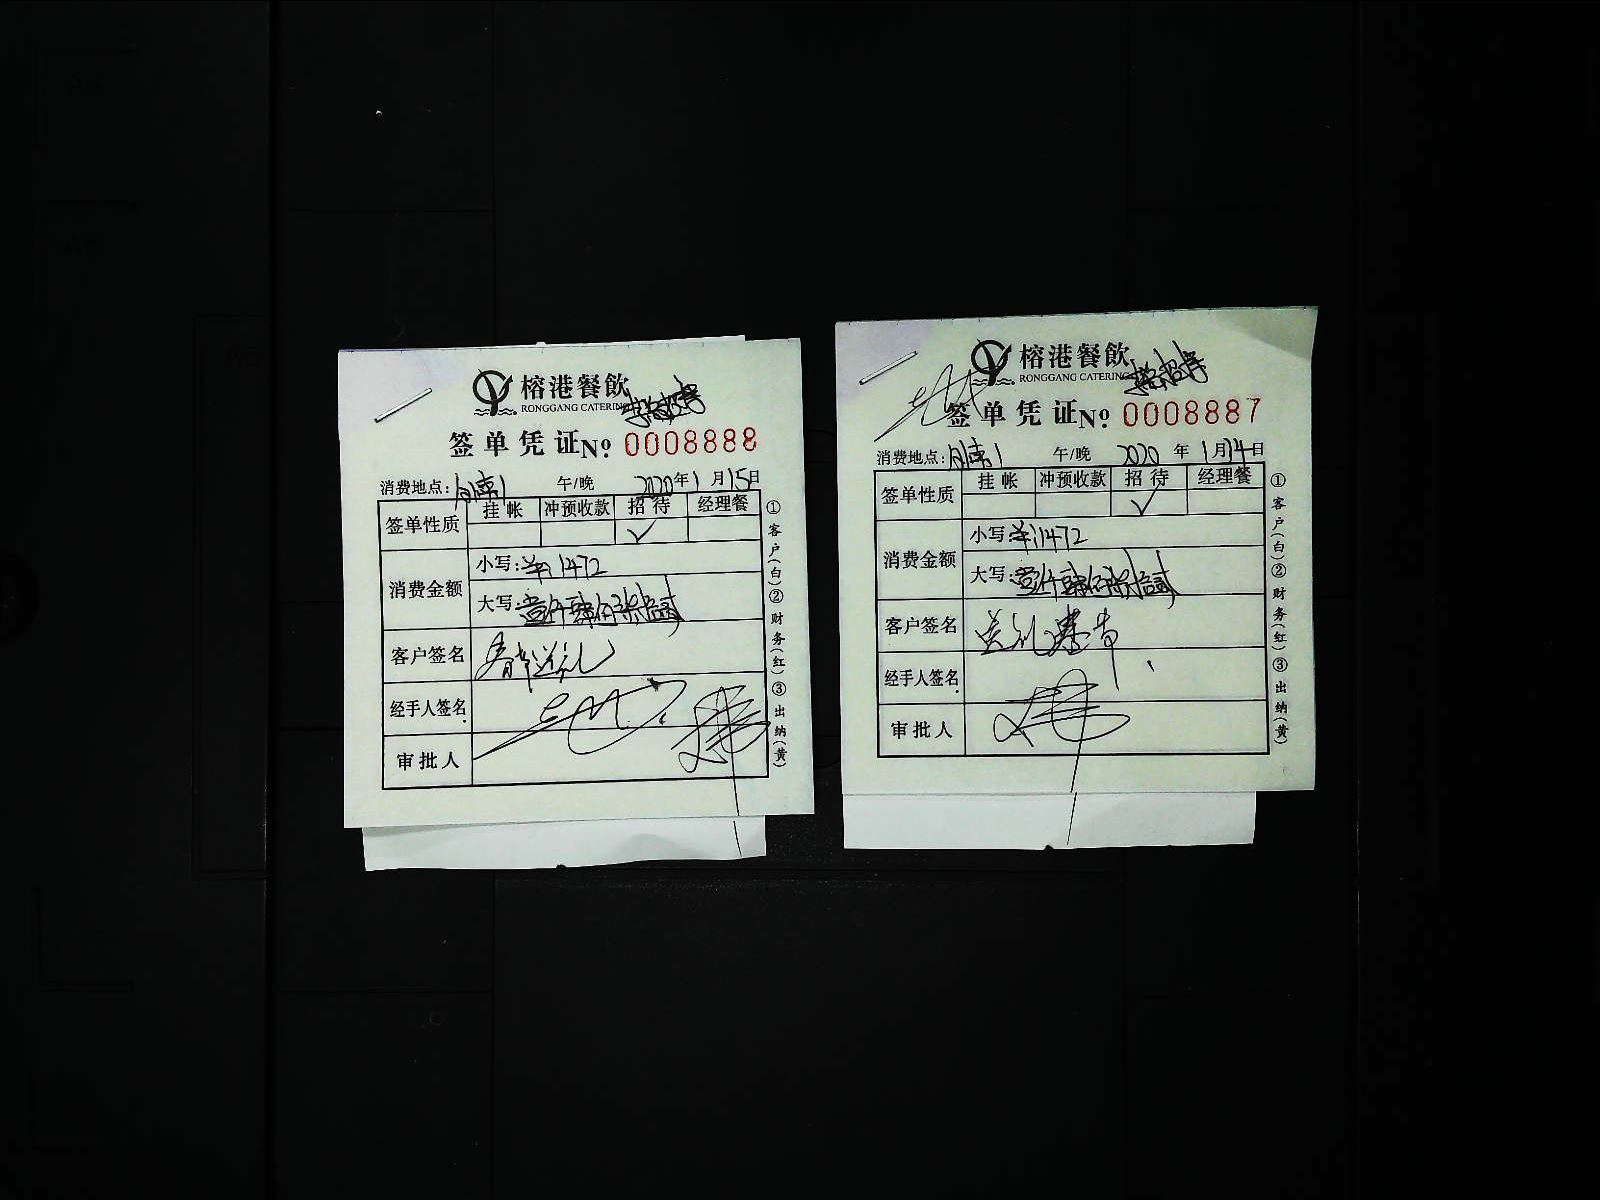 榕港餐飲
RONGGANG CATERING
签单凭证 No. 0008888
消费地点: 1 午/晚 2020年1月15日
签单性质 挂帐 冲预收款 招待 经理餐
✓
消费金额 小写: 1472
大写: 壹仟肆佰柒拾贰
客户签名 春节送礼
经手人签名
审批人
①客户(白)②财务(红)③出纳(黄)
榕港餐飲
RONGGANG CATERING
签单凭证 No. 0008887
消费地点: 1 午/晚 2020年1月14日
签单性质 挂帐 冲预收款 招待 经理餐
✓
消费金额 小写: 1472
大写: 壹仟肆佰柒拾贰
客户签名 送礼
经手人签名
审批人
①客户(白)②财务(红)③出纳(黄)